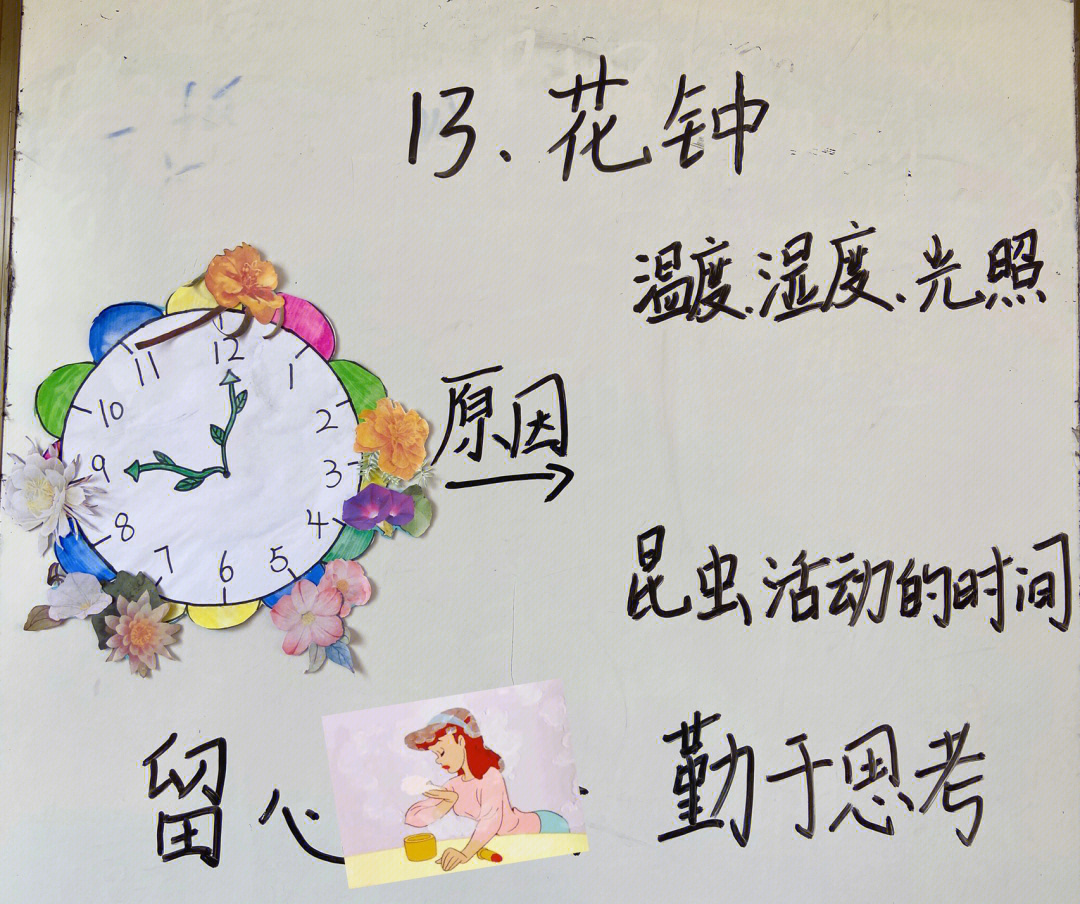 13.花钟
温度、湿度、光照
12
11
1
10
2
原因
9
3
8
4
7
6
5
昆虫活动的时间
留心
勤于思考